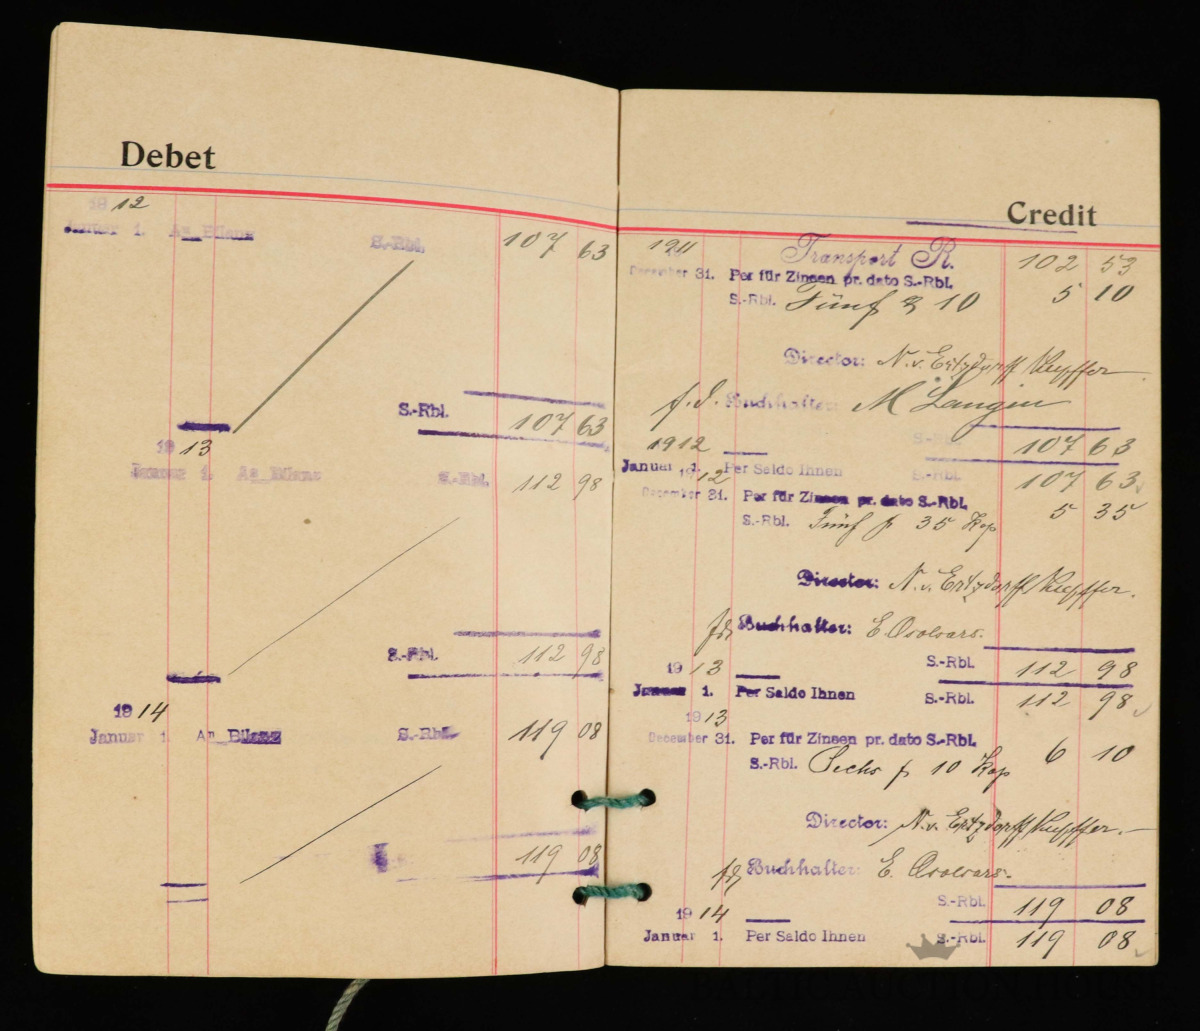 Debet
1912
Januar 1. An Bilanz S.-Rbl. 107 63
S.-Rbl. 107 63
1913
Januar 1. An Bilanz S.-Rbl. 112 98
S.-Rbl. 112 98
1914
Januar 1. An Bilanz S.-Rbl. 119 08
119 08
Credit
1911 Transport R. 102 53
December 31. Per für Zinsen pr. dato S.-Rbl.
S.-Rbl. Fünf & 10 5 10
Director: N. v. Ertzdorff Kupffer
f. d. Buchhalter: M Langin
S.-Rbl. 107 63
1912
Januar 1. Per Saldo Ihnen S.-Rbl. 107 63
1912
December 31. Per für Zinsen pr. dato S.-Rbl. 5 35
S.-Rbl. Fünf & 35 Kop
Director: N. v. Ertzdorff Kupffer.
fd Buchhalter: E.
S.-Rbl. 112 98
1913
Januar 1. Per Saldo Ihnen S.-Rbl. 112 98
1913
December 31. Per für Zinsen pr. dato S.-Rbl. 6 10
S.-Rbl. Sechs & 10 Kop
Director: N. v. Ertzdorff Kupffer.
fd Buchhalter: E.
S.-Rbl. 119 08
1914
Januar 1. Per Saldo Ihnen S.-Rbl. 119 08
BALTIC AUCTION HOUSE